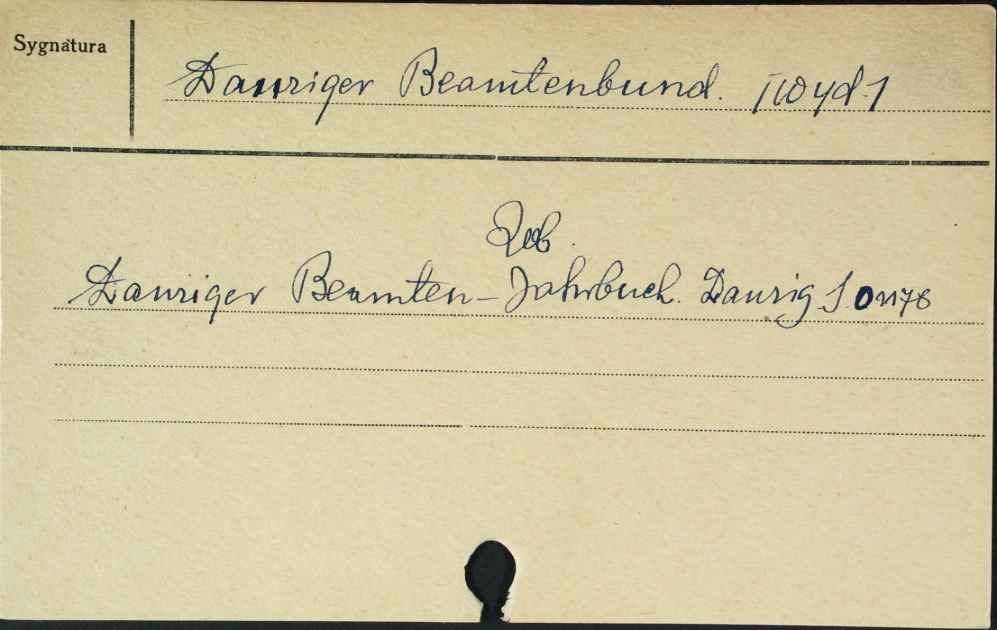 Sygnatura
Danziger Beamtenbund. [wyd.]
Zob.
Danziger Beamten-Jahrbuch. Danzig